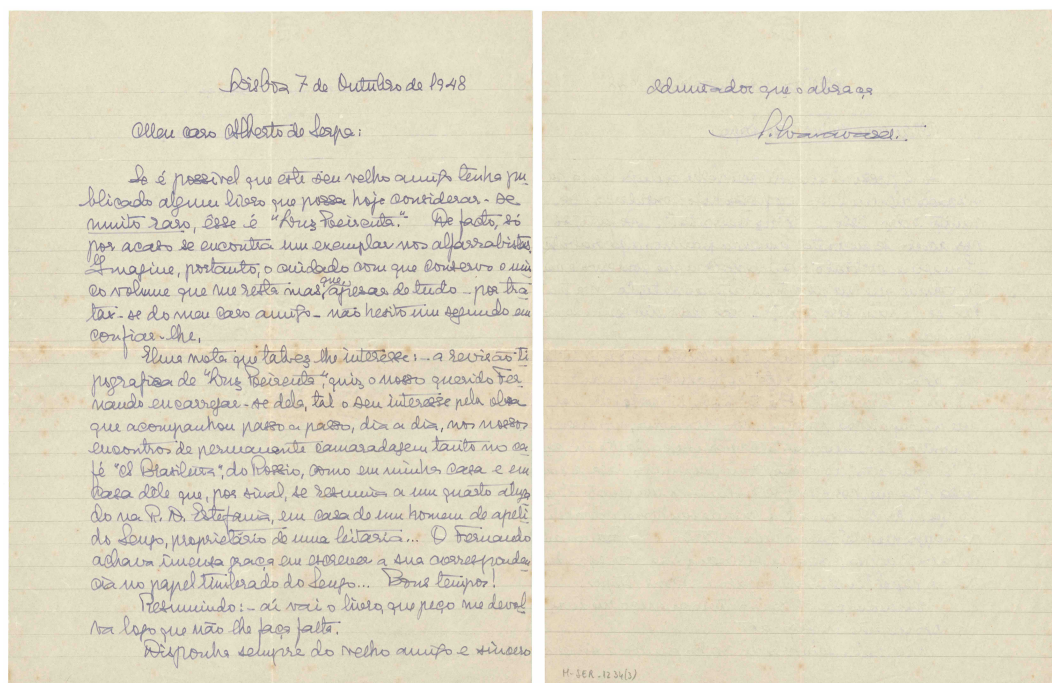 Lisboa 7 de Outubro de 1948
Meu caro Alberto de Serpa:
Se é possivel que este seu velho amigo tenha pu
blicado algum livro que possa hoje considerar-se
muito raro, êsse é "Luz Poeirenta." De facto, só
por acaso se encontra um exemplar nos alfarrabistas.
Imagine, portanto, o cuidado com que conservo o uni
co volume que me resta mas, que, apesar de tudo - por tra
tar-se do meu caro amigo - não hesito um segundo em
confiar-lhe.
Uma nota que talvez lhe interesse: - a revisão ti
pografica de "Luz Poeirenta", quis o nosso querido Fer
nando encarregar-se dela, tal o seu interêsse pela obra
que acompanhou passo a passo, dia a dia, nos nossos
encontros de permanente camaradagem tanto no ca
fé "A Brasileira", do Rossio, como em minha casa e em
casa dêle que, por sinal, se resumia a um quarto aluga
do na R. D. Estefania, em casa de um homem de apeli
do Sengo, proprietário de uma leitaria... O Fernando
achava imensa graça em escrever a sua correspondên
cia no papel timbrado do Sengo... Bons tempos!
Resumindo: - aí vai o livro, que peço me devol
va logo que não lhe faça falta.
Disponha sempre do velho amigo e sincero
admirador que o abraça
M-SER.1234(3)